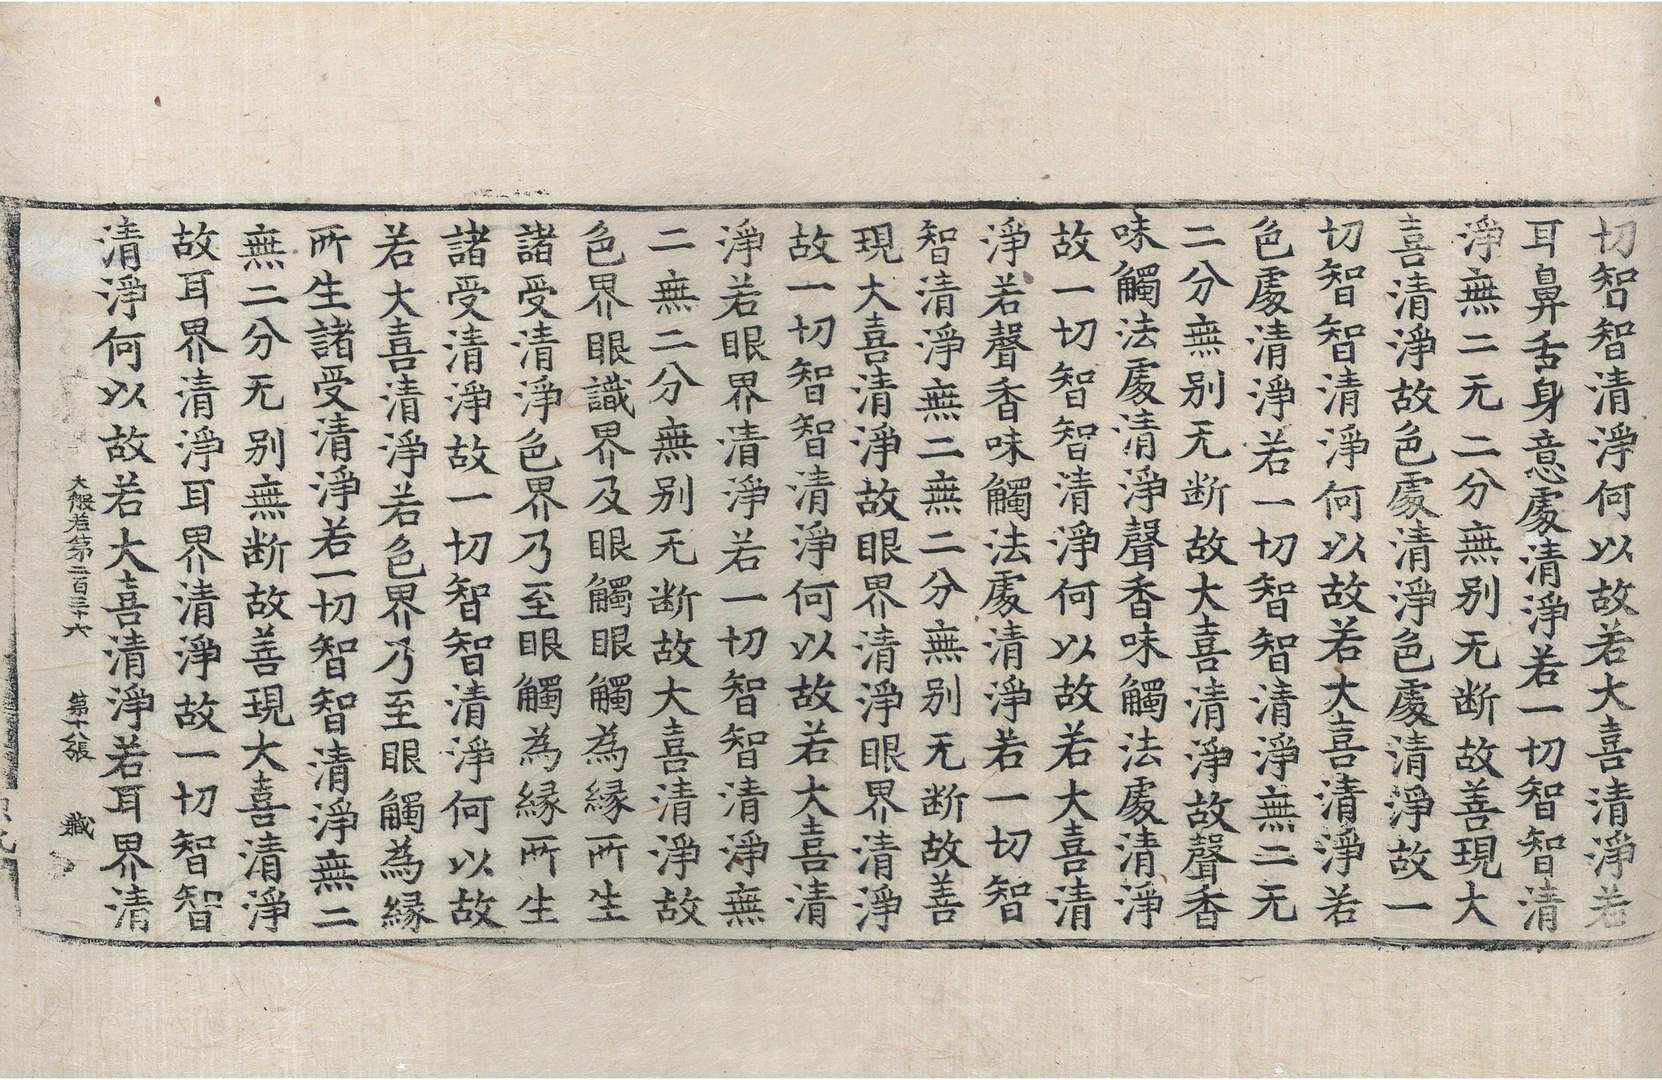 切智智清淨何以故若大喜清淨若
耳鼻舌身意處清淨若一切智智清
淨無二无二分無别无断故善現大
喜清淨故色處清淨色處清淨故一
切智智清淨何以故若大喜清淨若
色處清淨若一切智智清淨無二无
二分無别无断故大喜清淨故聲香
味觸法處清淨聲香味觸法處清淨
故一切智智清淨何以故若大喜清
淨若聲香味觸法處清淨若一切智
智清淨無二無二分無别无断故善
現大喜清淨故眼界清淨眼界清淨
故一切智智清淨何以故若大喜清
淨若眼界清淨若一切智智清淨無
二無二分無别无断故大喜清淨故
色界眼識界及眼觸眼觸為縁所生
諸受清淨色界乃至眼觸為縁所生
諸受清淨故一切智智清淨何以故
若大喜清淨若色界乃至眼觸為縁
所生諸受清淨若一切智智清淨無二
無二分无别無断故善現大喜清淨
故耳界清淨耳界清淨故一切智智
清淨何以故若大喜清淨若耳界清
大般若第二百三十六 第十八張 藏